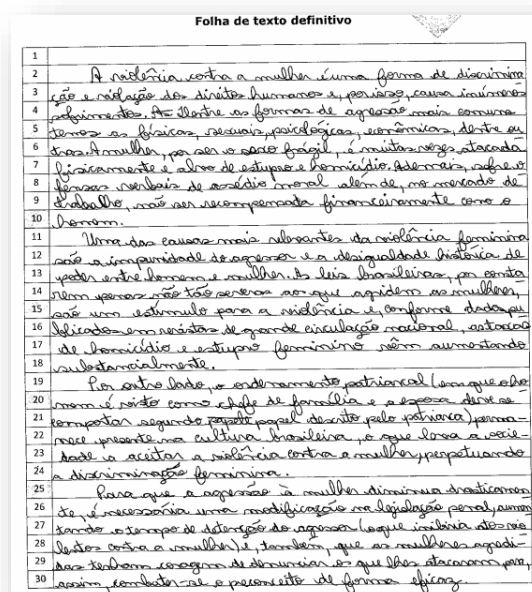 Folha de texto definitivo
1
2 A violência contra a mulher é uma forma de discrimina
3 ção e violação dos direitos humanos e, por isso, causa inúmeros
4 sofrimentos. Dentre as formas de agressão mais comuns
5 temos as físicas, sexuais, psicológicas, econômicas, dentre ou
6 tras. A mulher, por ser o sexo frágil, é muitas vezes atacada
7 fisicamente e alvo de estupro e homicídio. Ademais, sofre o
8 fensas verbais de assédio moral além de, no mercado de
9 trabalho, não ser recompensada financeiramente como o
10 homem.
11 Uma das causas mais relevantes da violência feminina
12 são a impunidade do agressor e a desigualdade histórica de
13 poder entre homem e mulher. As leis brasileiras, por conta
14 rem penas não tão severas aos que agridem as mulheres,
15 são um estímulo para a violência e, conforme dados pu
16 blicados em revistas de grande circulação nacional, as taxas
17 de homicídio e estupro feminino vêm aumentando
18 substancialmente.
19 Por outro lado, o ordenamento patriarcal (em que o ho
20 mem é visto como chefe de família e a esposa deve se
21 comportar segundo papel descrito pelo patriarca) perma
22 nece presente na cultura brasileira, o que leva a socie
23 dade a aceitar a violência contra a mulher, perpetuando
24 a discriminação feminina.
25 Para que a agressão à mulher diminua drasticamen
26 te, é necessária uma modificação na legislação penal, aumen
27 tando o tempo de detenção do agressor (o que inibiria atos vio
28 lentos contra a mulher) e, também, que as mulheres agredi-
29 das tenham coragem de denunciar os que lhes atacaram para,
30 assim, combater-se o preconceito de forma eficaz.